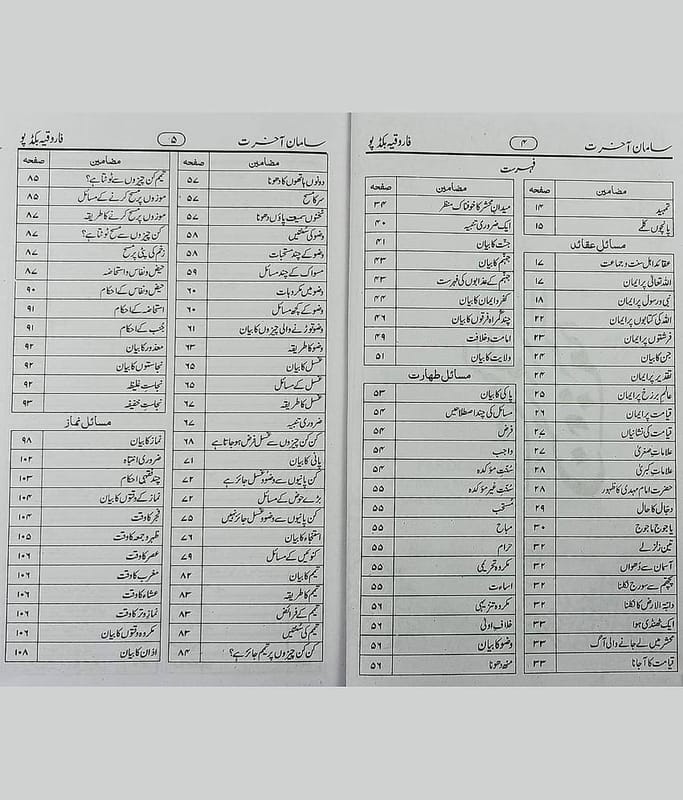 سامان آخرت ۴ فاروقیہ بکڈپو
فہرست
مضامین صفحہ
تمہید ۱۴
پانچوں کلمے ۱۵
مسائل عقائد
عقائد اہل سنت و جماعت ۱۷
اللہ تعالیٰ پر ایمان ۱۷
نبی و رسول پر ایمان ۱۸
اللہ کی کتابوں پر ایمان ۲۲
فرشتوں پر ایمان ۲۳
جن کا بیان ۲۴
تقدیر پر ایمان ۲۴
عالم برزخ پر ایمان ۲۵
قیامت پر ایمان ۲۶
قیامت کی نشانیاں ۲۷
علامات صغریٰ ۲۷
علامات کبریٰ ۲۸
حضرت امام مہدی کا ظہور ۲۸
دجال کا حال ۲۹
یاجوج ماجوج ۳۰
تین زلزلے ۳۲
آسمان سے دھواں ۳۲
پچھّم سے سورج نکلنا ۳۲
دابۃ الارض کا نکلنا ۳۲
ایک ٹھنڈی ہوا ۳۳
محشر میں لے جانے والی آگ ۳۳
قیامت کا آجانا ۳۳
مضامین صفحہ
میدان محشر کا خوفناک منظر ۳۴
ایک ضروری تنبیہ ۴۰
جنت کا بیان ۴۱
جہنم کا بیان ۴۳
جہنم کے عذابوں کی فہرست ۴۳
کفر و ایمان کا بیان ۴۴
چند گمراہ فرقوں کا بیان ۴۶
امامت و خلافت ۴۹
ولایت کا بیان ۵۱
مسائل طہارت
پاکی کا بیان ۵۳
مسائل کی چند اصطلاحیں ۵۴
فرض ۵۴
واجب ۵۴
سُنّتِ مؤکدہ ۵۴
سُنّتِ غیر مؤکدہ ۵۵
مُستحب ۵۵
مباح ۵۵
حرام ۵۵
مکروہ تحریمی ۵۵
اساءت ۵۵
مکروہ تنزیہی ۵۶
خلاف اولیٰ ۵۶
وضو کا بیان ۵۶
منھ دھونا ۵۶
سامان آخرت ۵ فاروقیہ بکڈپو
مضامین صفحہ
دونوں ہاتھوں کا دھونا ۵۷
سر کا مسح ۵۷
ٹخنوں سمیت پاؤں دھونا ۵۷
وضو کی سُنّتیں ۵۸
وضو کے چند مستحبات ۵۸
مسواک کے چند مسائل ۵۹
وضو میں مکروہات ۶۰
وضو کے کچھ مسائل ۶۰
وضو توڑنے والی چیزوں کا بیان ۶۱
وضو کا طریقہ ۶۳
غسل کا بیان ۶۵
غسل کے مسائل ۶۵
غسل کا طریقہ ۶۷
ضروری تنبیہ ۶۷
کن کن چیزوں سے غسل فرض ہو جاتا ہے ۶۸
پانی کا بیان ۷۱
کن پانیوں سے وضو و غسل جائز ہے ۷۲
بڑے حوض کے مسائل ۷۲
کن پانیوں سے وضو و غسل جائز نہیں ۷۵
استنجاء کا بیان ۷۶
کنوئیں کے مسائل ۷۹
تیمم کا بیان ۸۲
تیمم کا طریقہ ۸۳
تیمم کے فرائض ۸۳
تیمم کی سُنّتیں ۸۳
کن کن چیزوں پر تیمم جائز ہے؟ ۸۴
مضامین صفحہ
تیمم کن چیزوں سے ٹوٹتا ہے؟ ۸۵
موزوں پر مسح کرنے کے مسائل ۸۵
موزوں پر مسح کرنے کا طریقہ ۸۷
کن چیزوں سے مسح ٹوٹتا ہے؟ ۸۷
زخم کی پٹی پر مسح ۸۷
حیض و نفاس و استحاضہ ۸۷
حیض و نفاس کے احکام ۹۰
استحاضہ کے احکام ۹۱
جُنب کے احکام ۹۱
معذور کا بیان ۹۲
نجاستوں کا بیان ۹۲
نجاستِ غلیظہ ۹۲
نجاستِ خفیفہ ۹۳
مسائل نماز
نماز کا بیان ۹۸
ضروری انتباہ ۱۰۲
چند فقہی احکام ۱۰۳
نماز کے وقتوں کا بیان ۱۰۴
فجر کا وقت ۱۰۴
ظہر و جمعہ کا وقت ۱۰۵
عصر کا وقت ۱۰۶
مغرب کا وقت ۱۰۶
عشاء کا وقت ۱۰۶
نماز وتر کا وقت ۱۰۶
مکروہ وقتوں کا بیان ۱۰۶
اذان کا بیان ۱۰۸